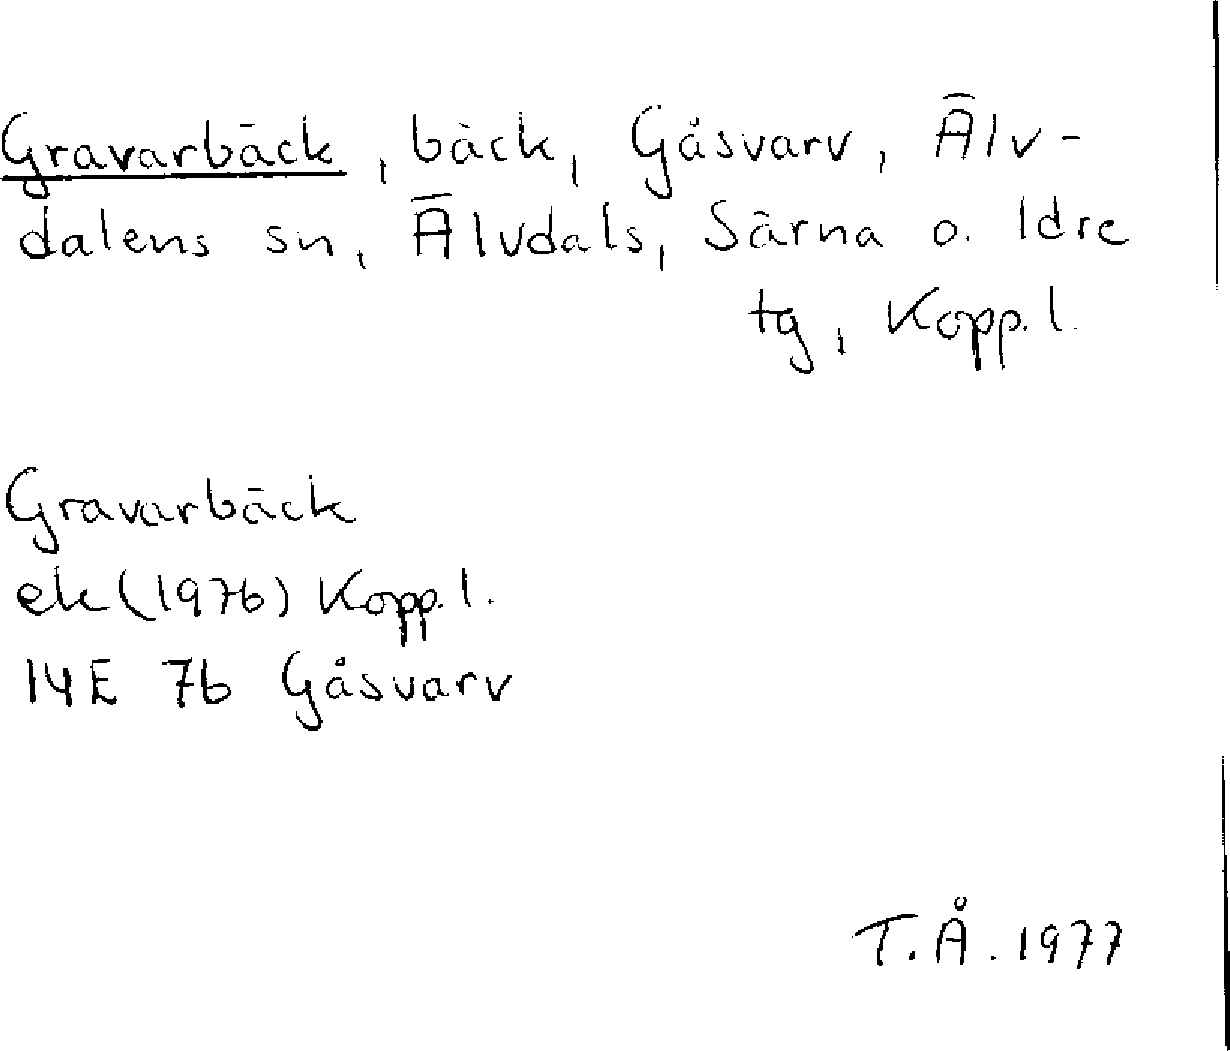 Gravarbäck, bäck, Gåsvarv, Älv-
dalens sn, Älvdals, Särna o. Idre
tg, Kopp. l.
Gravarbäck
ek (1976) Kopp. l.
14E 7b Gåsvarv
T.Å. 1977